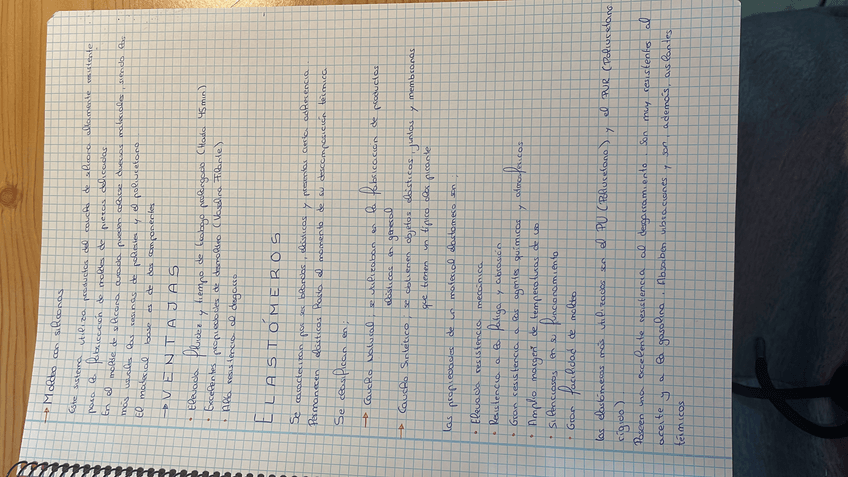 → Moldeo con siliconas
Este sistema utiliza productos del caucho de silicona altamente resistente
para la fabricación de moldes de piezas delicadas
En el molde de silicona curada pueden colarse diversos materiales, siendo los
más usuales las resinas de poliester y el poliuretano
El material base es de dos componentes
→ VENTAJAS
• Elevada fluidez y tiempo de trabajo prolongado (hasta 45min)
• Excelentes propiedades de desmoldeo (Vaselina Filante)
• Alta resistencia al desgarro
ELASTÓMEROS
Se caracterizan por ser blandos, elásticos y presentar cierta adherencia.
Permanecen elásticos hasta el momento de su descomposición térmica
Se clasifican en:
→ Caucho Natural; se utilizaban en la fabricación de productos
elásticos en general
→ Caucho Sintético; se obtienen objetos elásticos, juntas y membranas
que tienen un típico olor picante
Las propiedades de un material elastómero son:
• Elevada resistencia mecánica
• Resistencia a la fatiga y abrasión
• Gran resistencia a los agentes químicos y atmosféricos
• Amplio margen de temperaturas de uso
• Silenciosos en su funcionamiento
• Gran facilidad de moldeo
Los elastómeros más utilizados son el PU (Poliuretano) y el PUR (Poliuretano
rígido)
Poseen una excelente resistencia al desgarramiento. Son muy resistentes al
aceite y a la gasolina. Absorben vibraciones y son, además, aislantes
térmicos